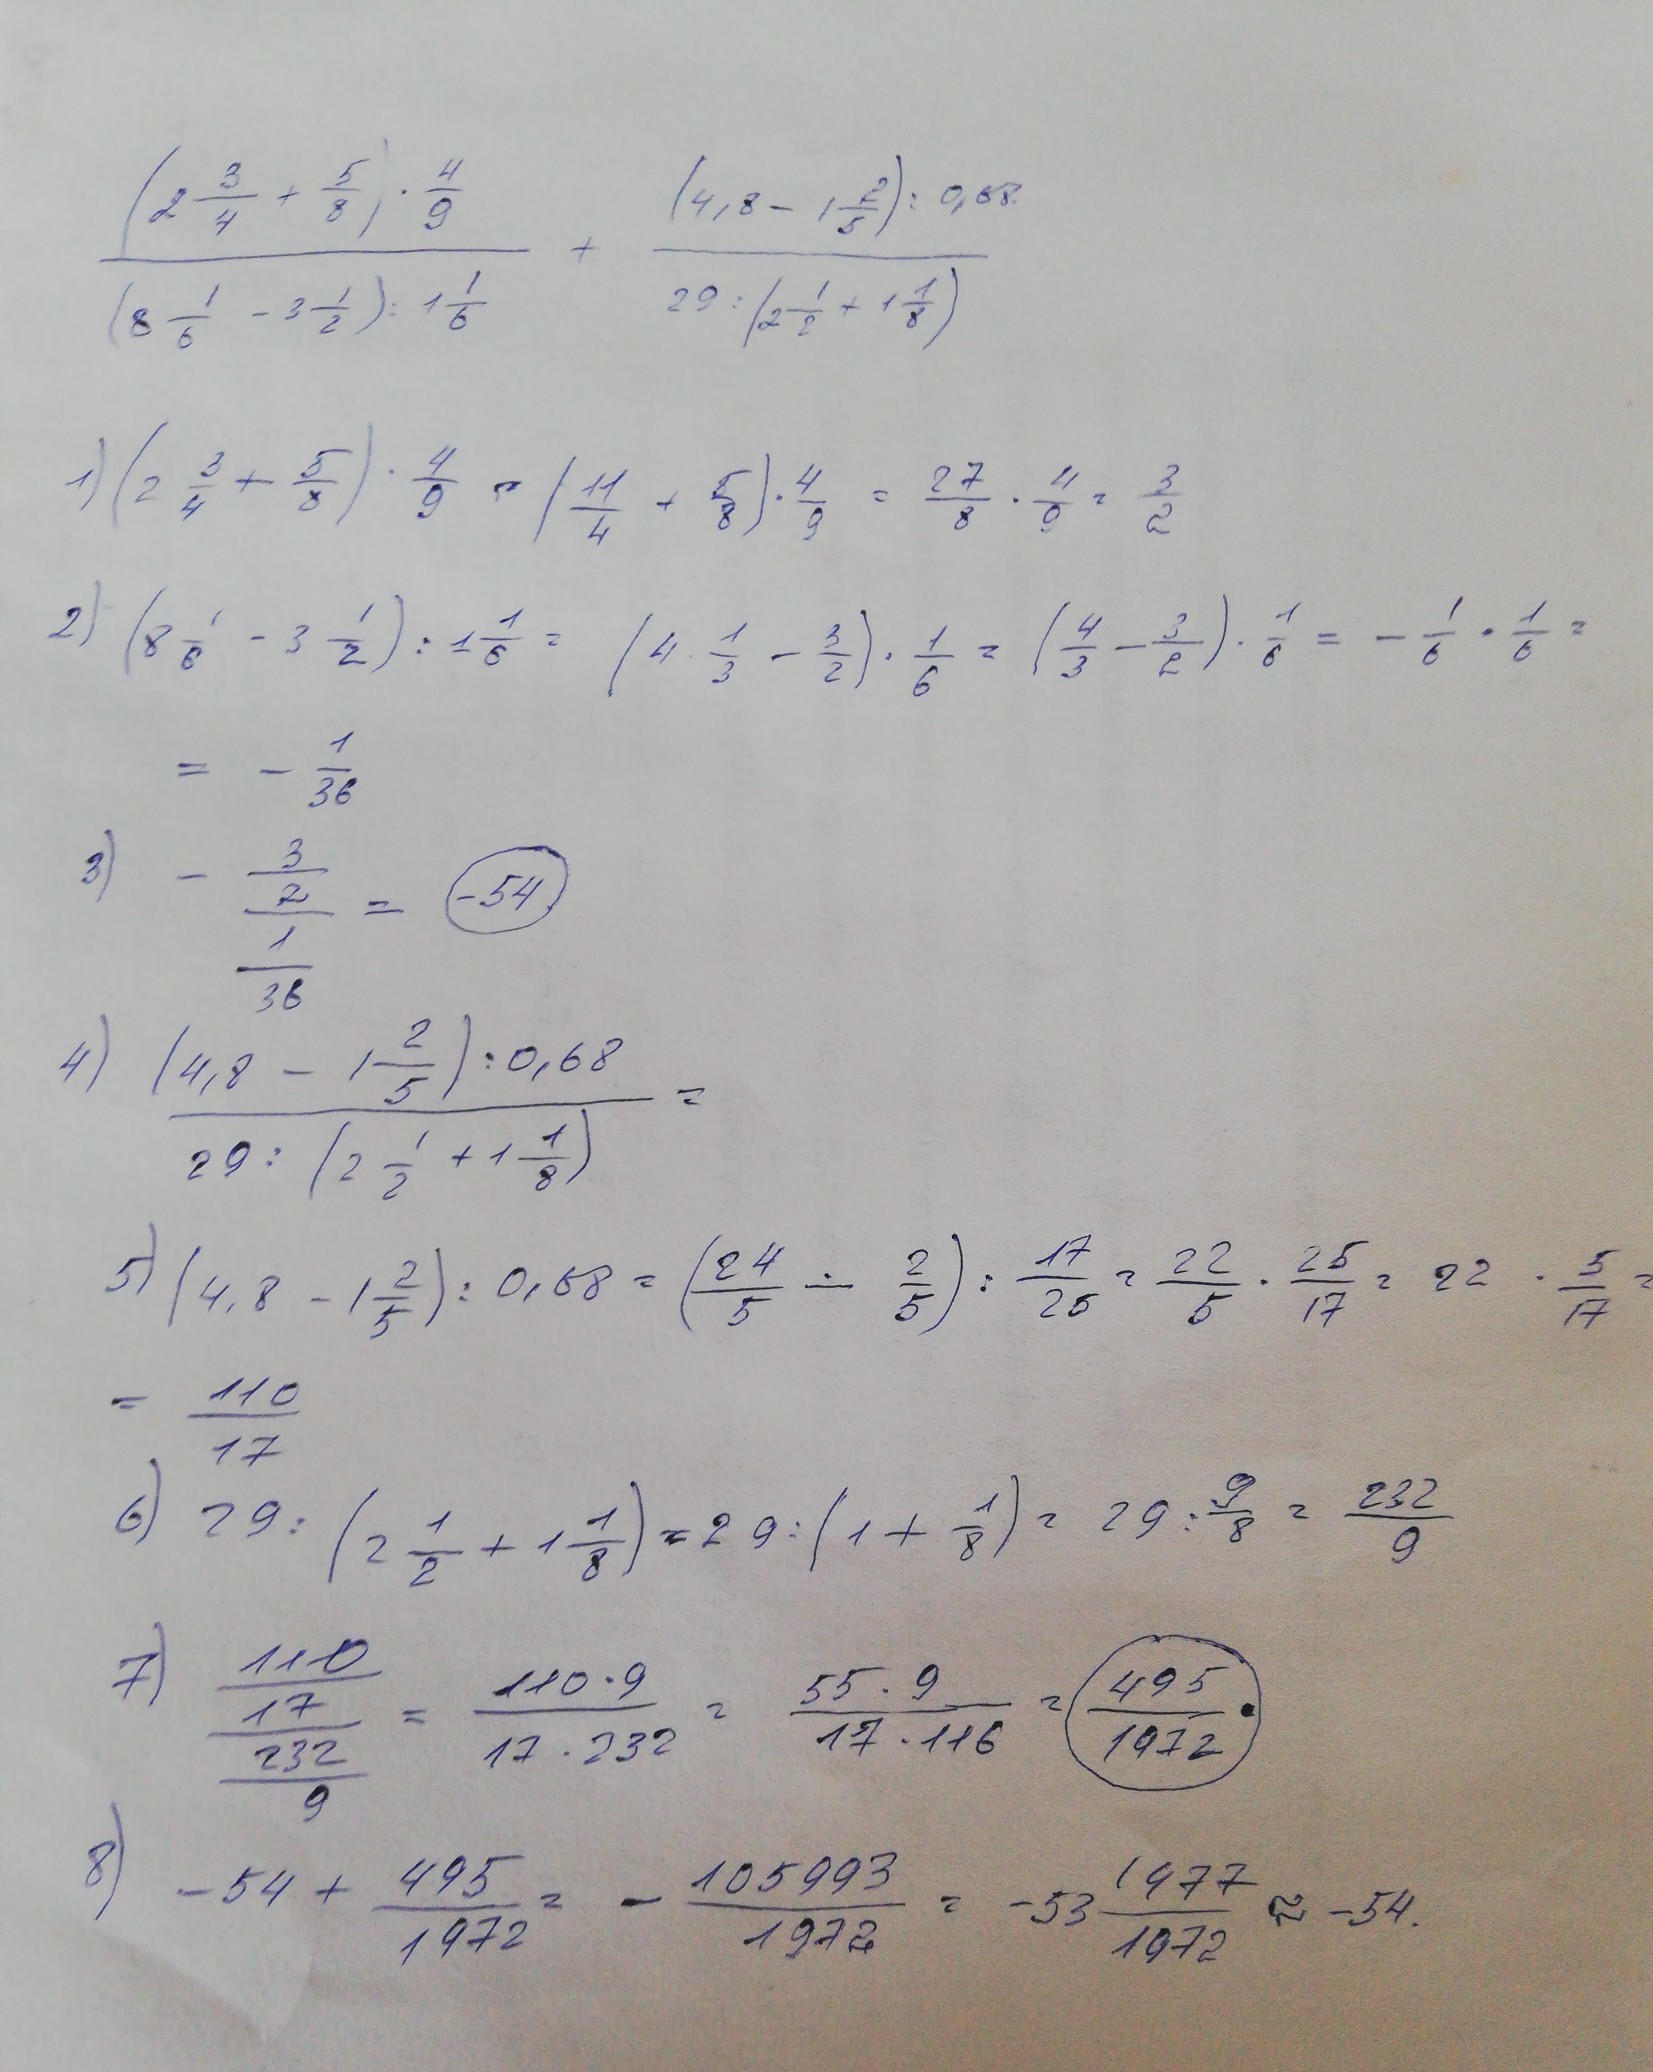 (2 3/4 + 5/8) · 4/9 / (8 1/6 - 3 1/2) : 1 1/6 + (4,8 - 1 2/5) : 0,68 / 29 : (2 1/2 + 1 1/8)
1) (2 3/4 + 5/8) · 4/9 = (11/4 + 5/8) · 4/9 = 27/8 · 4/9 = 3/2
2) (8 1/6 - 3 1/2) : 1 1/6 = (4 · 1/3 - 3/2) · 1/6 = (4/3 - 3/2) · 1/6 = - 1/6 · 1/6 =
= - 1/36
3) - 3/2 / 1/36 = -54
4) (4,8 - 1 2/5) : 0,68 / 29 : (2 1/2 + 1 1/8) =
5) (4,8 - 1 2/5) : 0,68 = (24/5 - 2/5) : 17/25 = 22/5 · 25/17 = 22 · 5/17 =
= 110/17
6) 29 : (2 1/2 + 1 1/8) = 29 : (1 + 1/8) = 29 : 9/8 = 232/9
7) 110/17 / 232/9 = 110 · 9 / 17 · 232 = 55 · 9 / 17 · 116 = 495/1972 .
8) -54 + 495/1972 = - 105993/1972 = -53 1477/1972 ≈ -54.